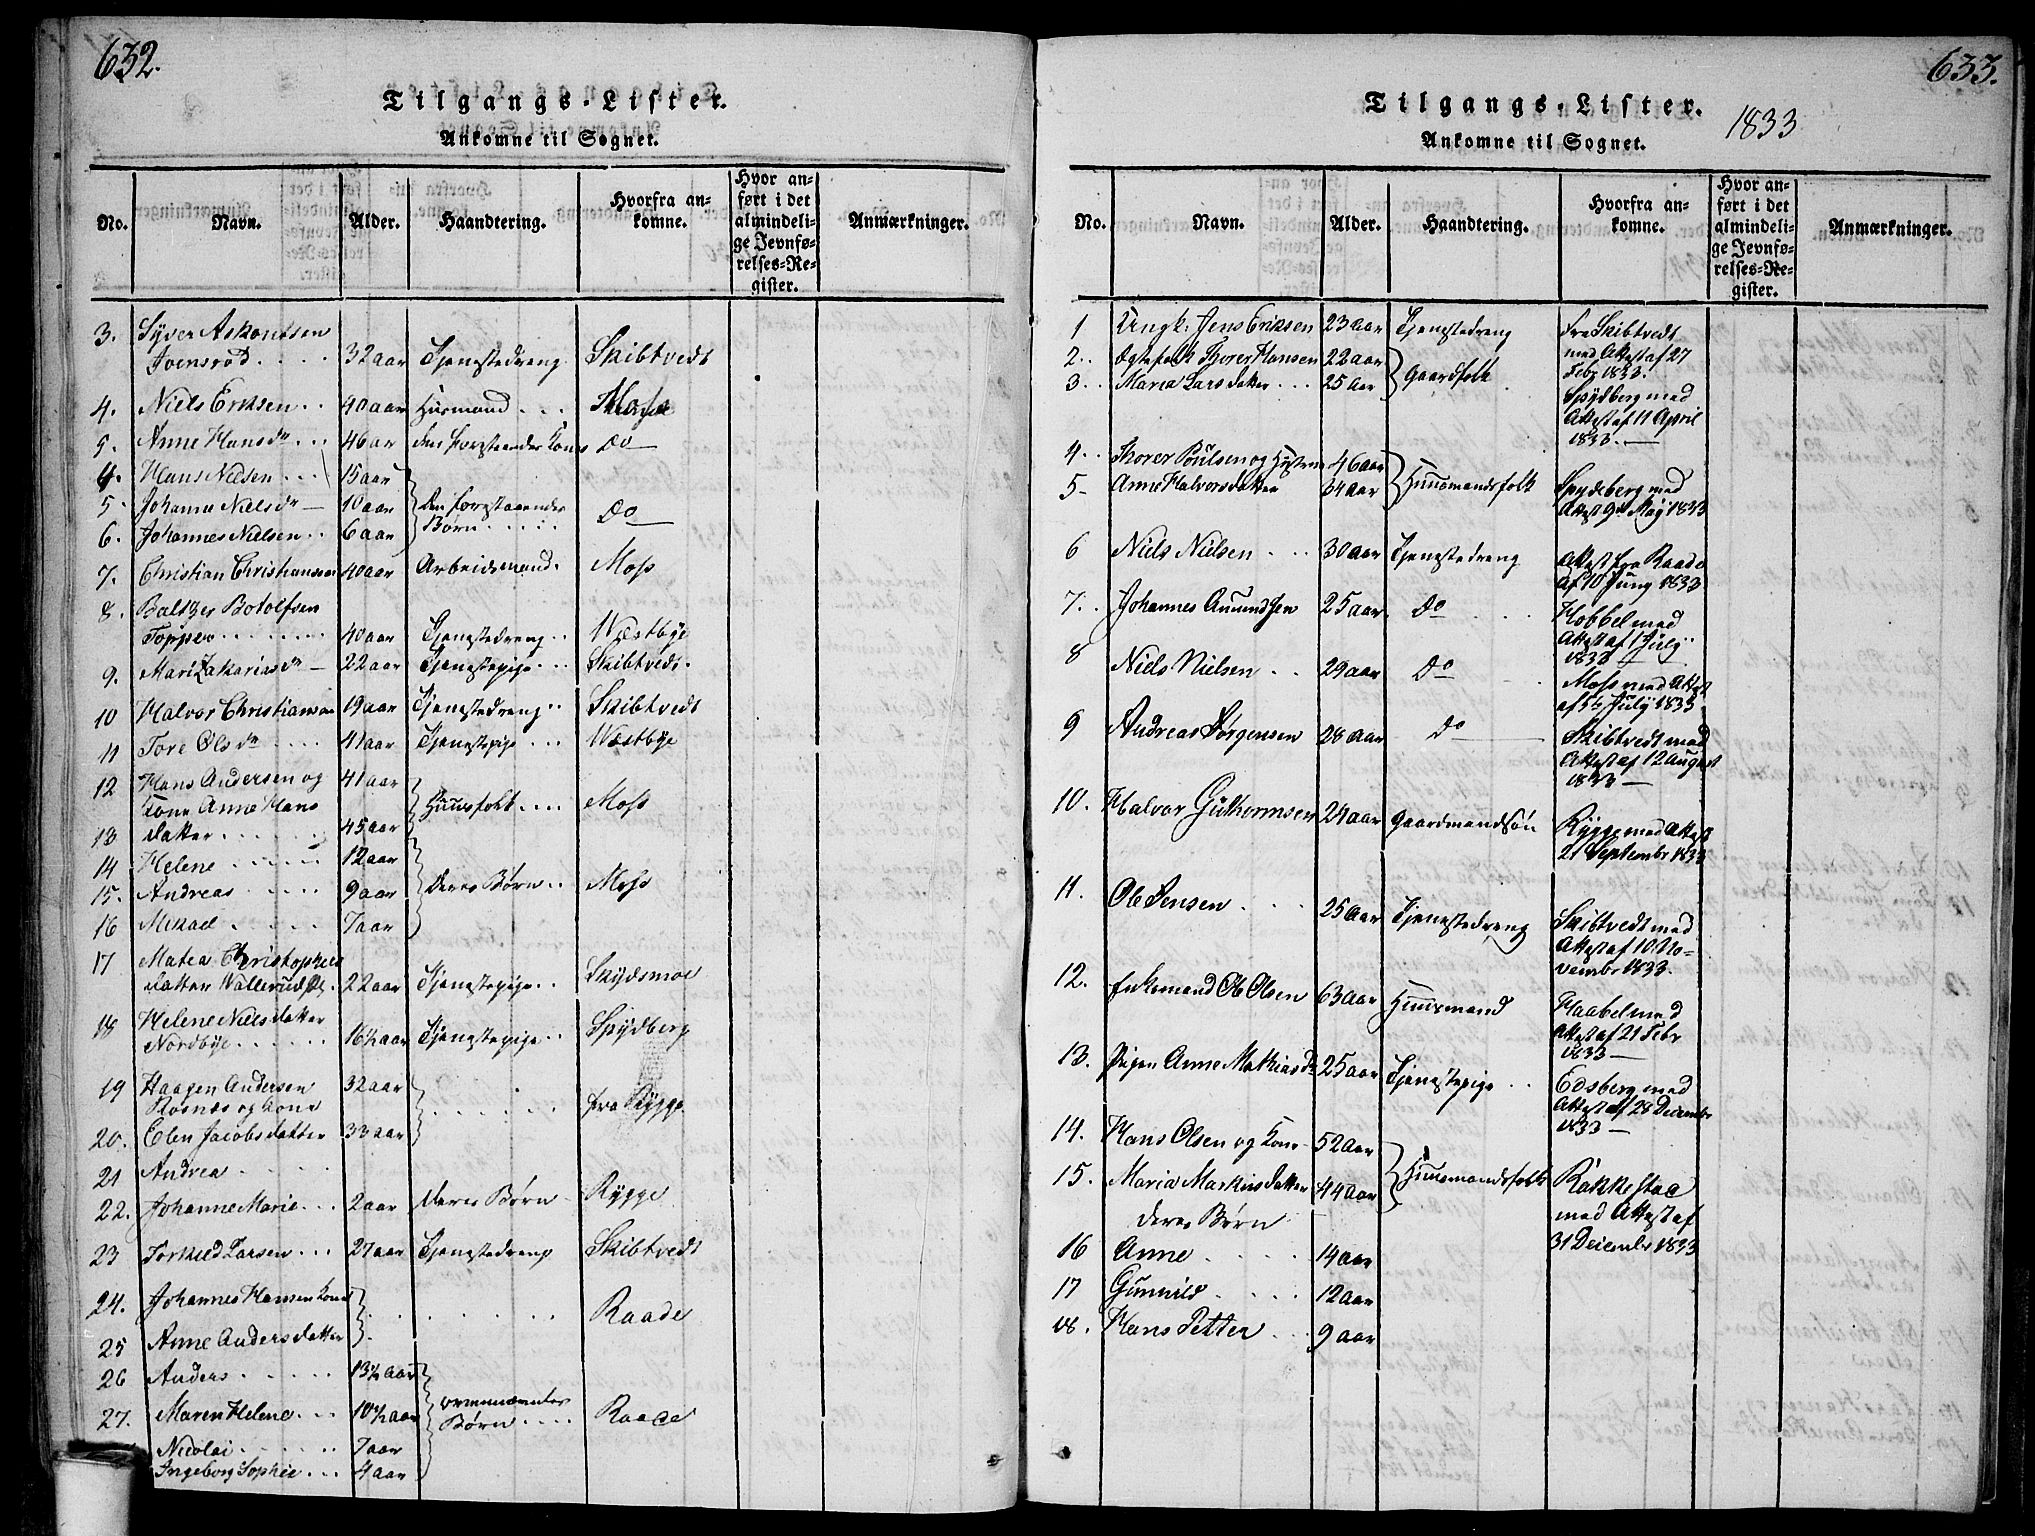 632.
Tilgangs-Lister.
Ankomne til Sognet.
No. Navn. Alder. Haandtering. Hvorfra ankomne. Hvor anført i det almindelige Jevnførelses-Register. Anmærkninger.
3. Syver Askontsen
Joensrød . . . . 32 aar Tjenestedreng Skibtvedt
4. Niels Eriksen . . 40 aar Huusmand . . . Moss
5. Anne Hansdr . . . 46 aar den forestaaendes Kone Do
4. Hans Nielsen . . . 15 aar
5. Johanne Nielsdr — 10 aar Den forestaaendes
6. Johannes Nielsen . . 6 aar Børn . . . . . Do
7. Christian Christiansen 40 aar Arbeidsmand . Moss
8. Baltzer Botolfsen
Topper . . . . . . 40 aar Tjenestedreng . . Westbye
9. Mari Zakariasdr — 22 aar Tjenestepige . . . Skibtvedt.
10 Halvor Christiansen 19 aar Tjenestedreng . . Skibtvedt
11 Tore Olsdr . . . . 41 aar Tjenestepige . . . Westbye
12 Hans Andersen og 41 aar
Kone Anne Hans Huusfolk . . . . Moss
13 datter . . . . . . 45 aar
14 Helene . . . . . 12 aar
15. Andreas . . . . . 9 aar Deres Børn . . Moss
16 Mikael . . . . . 7 aar
17 Matea Christophers
datter Wallerud . 22 aar Tjenestepige . . Skydsmoe
18 Helene Nielsdatter
Nordbye . . . . . . 16½ aar Tjenestepige . . Spydberg
19 Haagen Andersen 32 aar
Rosnæs og Kone . . . . . . fra Rygge
20. Elen Jacobsdatter 33 aar
21 Andrea . . . . .
22. Johanne Marie . . . 2 aar deres Børn Rygge
23 Torkild Larsen . . . 27 aar Tjenestedreng Skibtvedt
24. Johannes Hansen Kone
. . . . . . Raade
25 Anne Andersdatter
26 Anders . . . . . . 13½ aar
27. Maren Helene . . . 10½ aar ovennævntes
Børn . . . . Raade
Nicolai . . . . . . 7 aar
Ingeborg Sophie . . . 4 aar
633.
Tilgangs-Lister. 1833
Ankomne til Sognet.
No. Navn. Alder. Haandtering. Hvorfra ankomne. Hvor anført i det almindelige Jevnførelses-Register. Anmærkninger.
1 Ungk. Jens Eriksen 23 aar Tjenestedreng Fra Skibtvedt
med Attest af 27
Febr 1833.
2. . Egtefolk Thorer Hansen 22 aar
3. . Maria Larsdatter . . . 25 aar Gaardfolk Spydberg med
Attest af 11 April
1833. —
4. . Thorer Poulsen og Hustru 46 aar
5- Anne Halvorsdatter 34 aar Huusmandsfolk Spydeberg med
Attest 9de May 1833
6 Niels Nielsen . . . 30 aar Tjenestedreng Attest fra Raade
af 10 Juny 1833
7. . Johannes Amundsen 25 aar Do Hobbel med
Attest af 1 July
1833 —
8 Niels Nielsen . . 29 aar Do Moss med Attest
af 5te July 1833
9 Andreas Jørgensen 28 aar Do Skibtvedt med
Attest af 12 August
1833 —
10. Halvor Guthormsen 24 aar Gaardmandsøn Rygge med Attest
21 Septembr 1833
11. Ole Jensen . . . 25 aar Tjenestedreng Skibtvedt med
Attest af 10 No-
vembr 1833.
12. Enkemand Ole Olsen 63 aar Huusmand Haabel med
Attest af 21 Febr
1833 —
13. Pigen Anne Mathiasdr 25 aar Tjenestepige . . Edsberg med
Attest af 28 Decembr
1833 —
14. Hans Olsen og Kone 52 aar
15. Maria Markusdatter 44 aar Huusmandsfolk Rakkestad
Deres Børn med Attest af
16 Anne . . . . 14 aar 31 Decembr 1833
17 Gunnild . . . . 12 aar
18. Hans Petter . . 9 aar